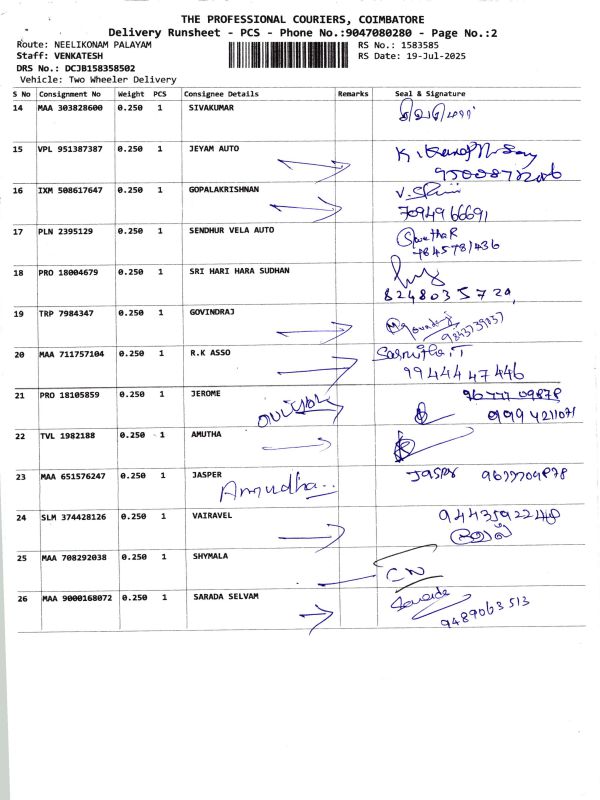 THE PROFESSIONAL COURIERS, COIMBATORE
Delivery Runsheet - PCS - Phone No.:9047080280 - Page No.:2
Route: NEELIKONAM PALAYAM RS No.: 1583585
Staff: VENKATESH RS Date: 19-Jul-2025
DRS No.: DCJB158358502
Vehicle: Two Wheeler Delivery
S No Consignment No Weight PCS Consignee Details Remarks Seal & Signature
14 MAA 303828600 0.250 1 SIVAKUMAR
15 VPL 951387387 0.250 1 JEYAM AUTO
16 IXM 508617647 0.250 1 GOPALAKRISHNAN
7094966691
17 PLN 2395129 0.250 1 SENDHUR VELA AUTO
Swetha R
7845781436
18 PRO 18004679 0.250 1 SRI HARI HARA SUDHAN
8248035720
19 TRP 7984347 0.250 1 GOVINDRAJ
9843739837
20 MAA 711757104 0.250 1 R.K ASSO
9944447446
21 PRO 18105859 0.250 1 JEROME
9994211071
22 TVL 1982188 0.250 1 AMUTHA
23 MAA 651576247 0.250 1 JASPER Jasper 9677709878
Amrudha..
24 SLM 374428126 0.250 1 VAIRAVEL 9443592248
25 MAA 708292038 0.250 1 SHYMALA
CN
26 MAA 9000168072 0.250 1 SARADA SELVAM
9489063513